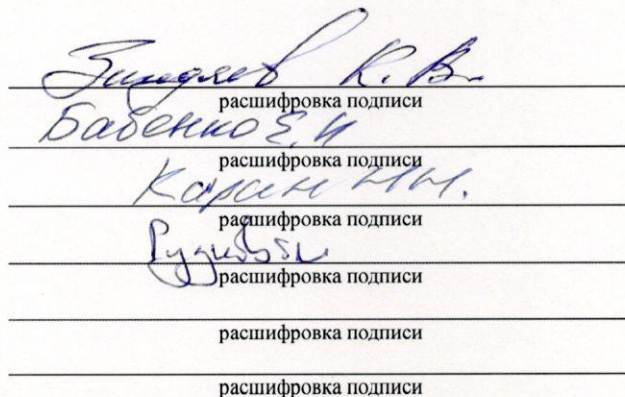 К. В.
расшифровка подписи
Бабенко Е. И
расшифровка подписи
Карин Н Н.
расшифровка подписи
расшифровка подписи
расшифровка подписи
расшифровка подписи